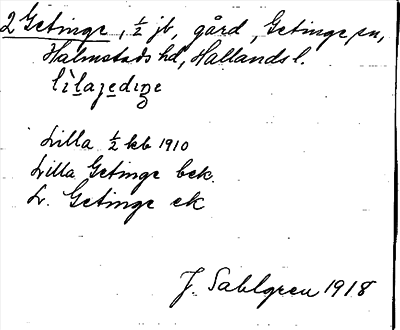 2 Getinge, ½ jb, gård, Getinge sn,
Halmstads hd, Hallands l.
Lilla ½ kb 1910
Lilla Getinge bek.
L. Getinge ek
J. Sahlgren 1918